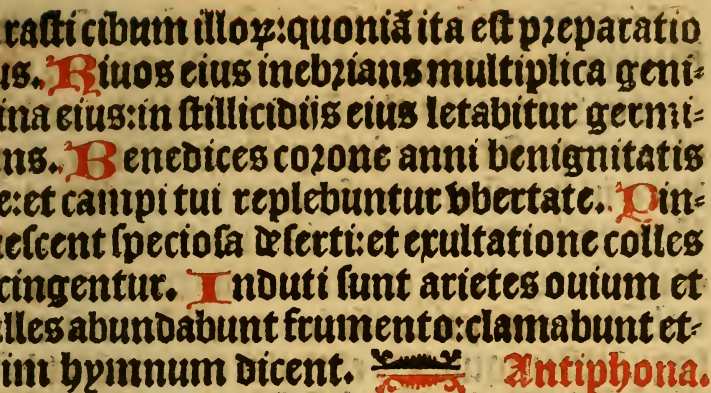 rasti cibum illoꝝ: quoniā ita est preparatio
us. Riuos eius inebrians multiplica geni⸗
ina eius: in stillicidijs eius letabitur germi⸗
ns. Benedices corone anni benignitatis
e: et campi tui replebuntur vbertate. Pin⸗
uescent speciosa deserti: et exultatione colles
cingentur. Induti sunt arietes ouium et
lles abundabunt frumento: clamabunt et⸗
im hymnum dicent. Antiphona.